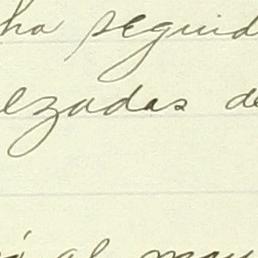 ha seguid
lzadas de
al